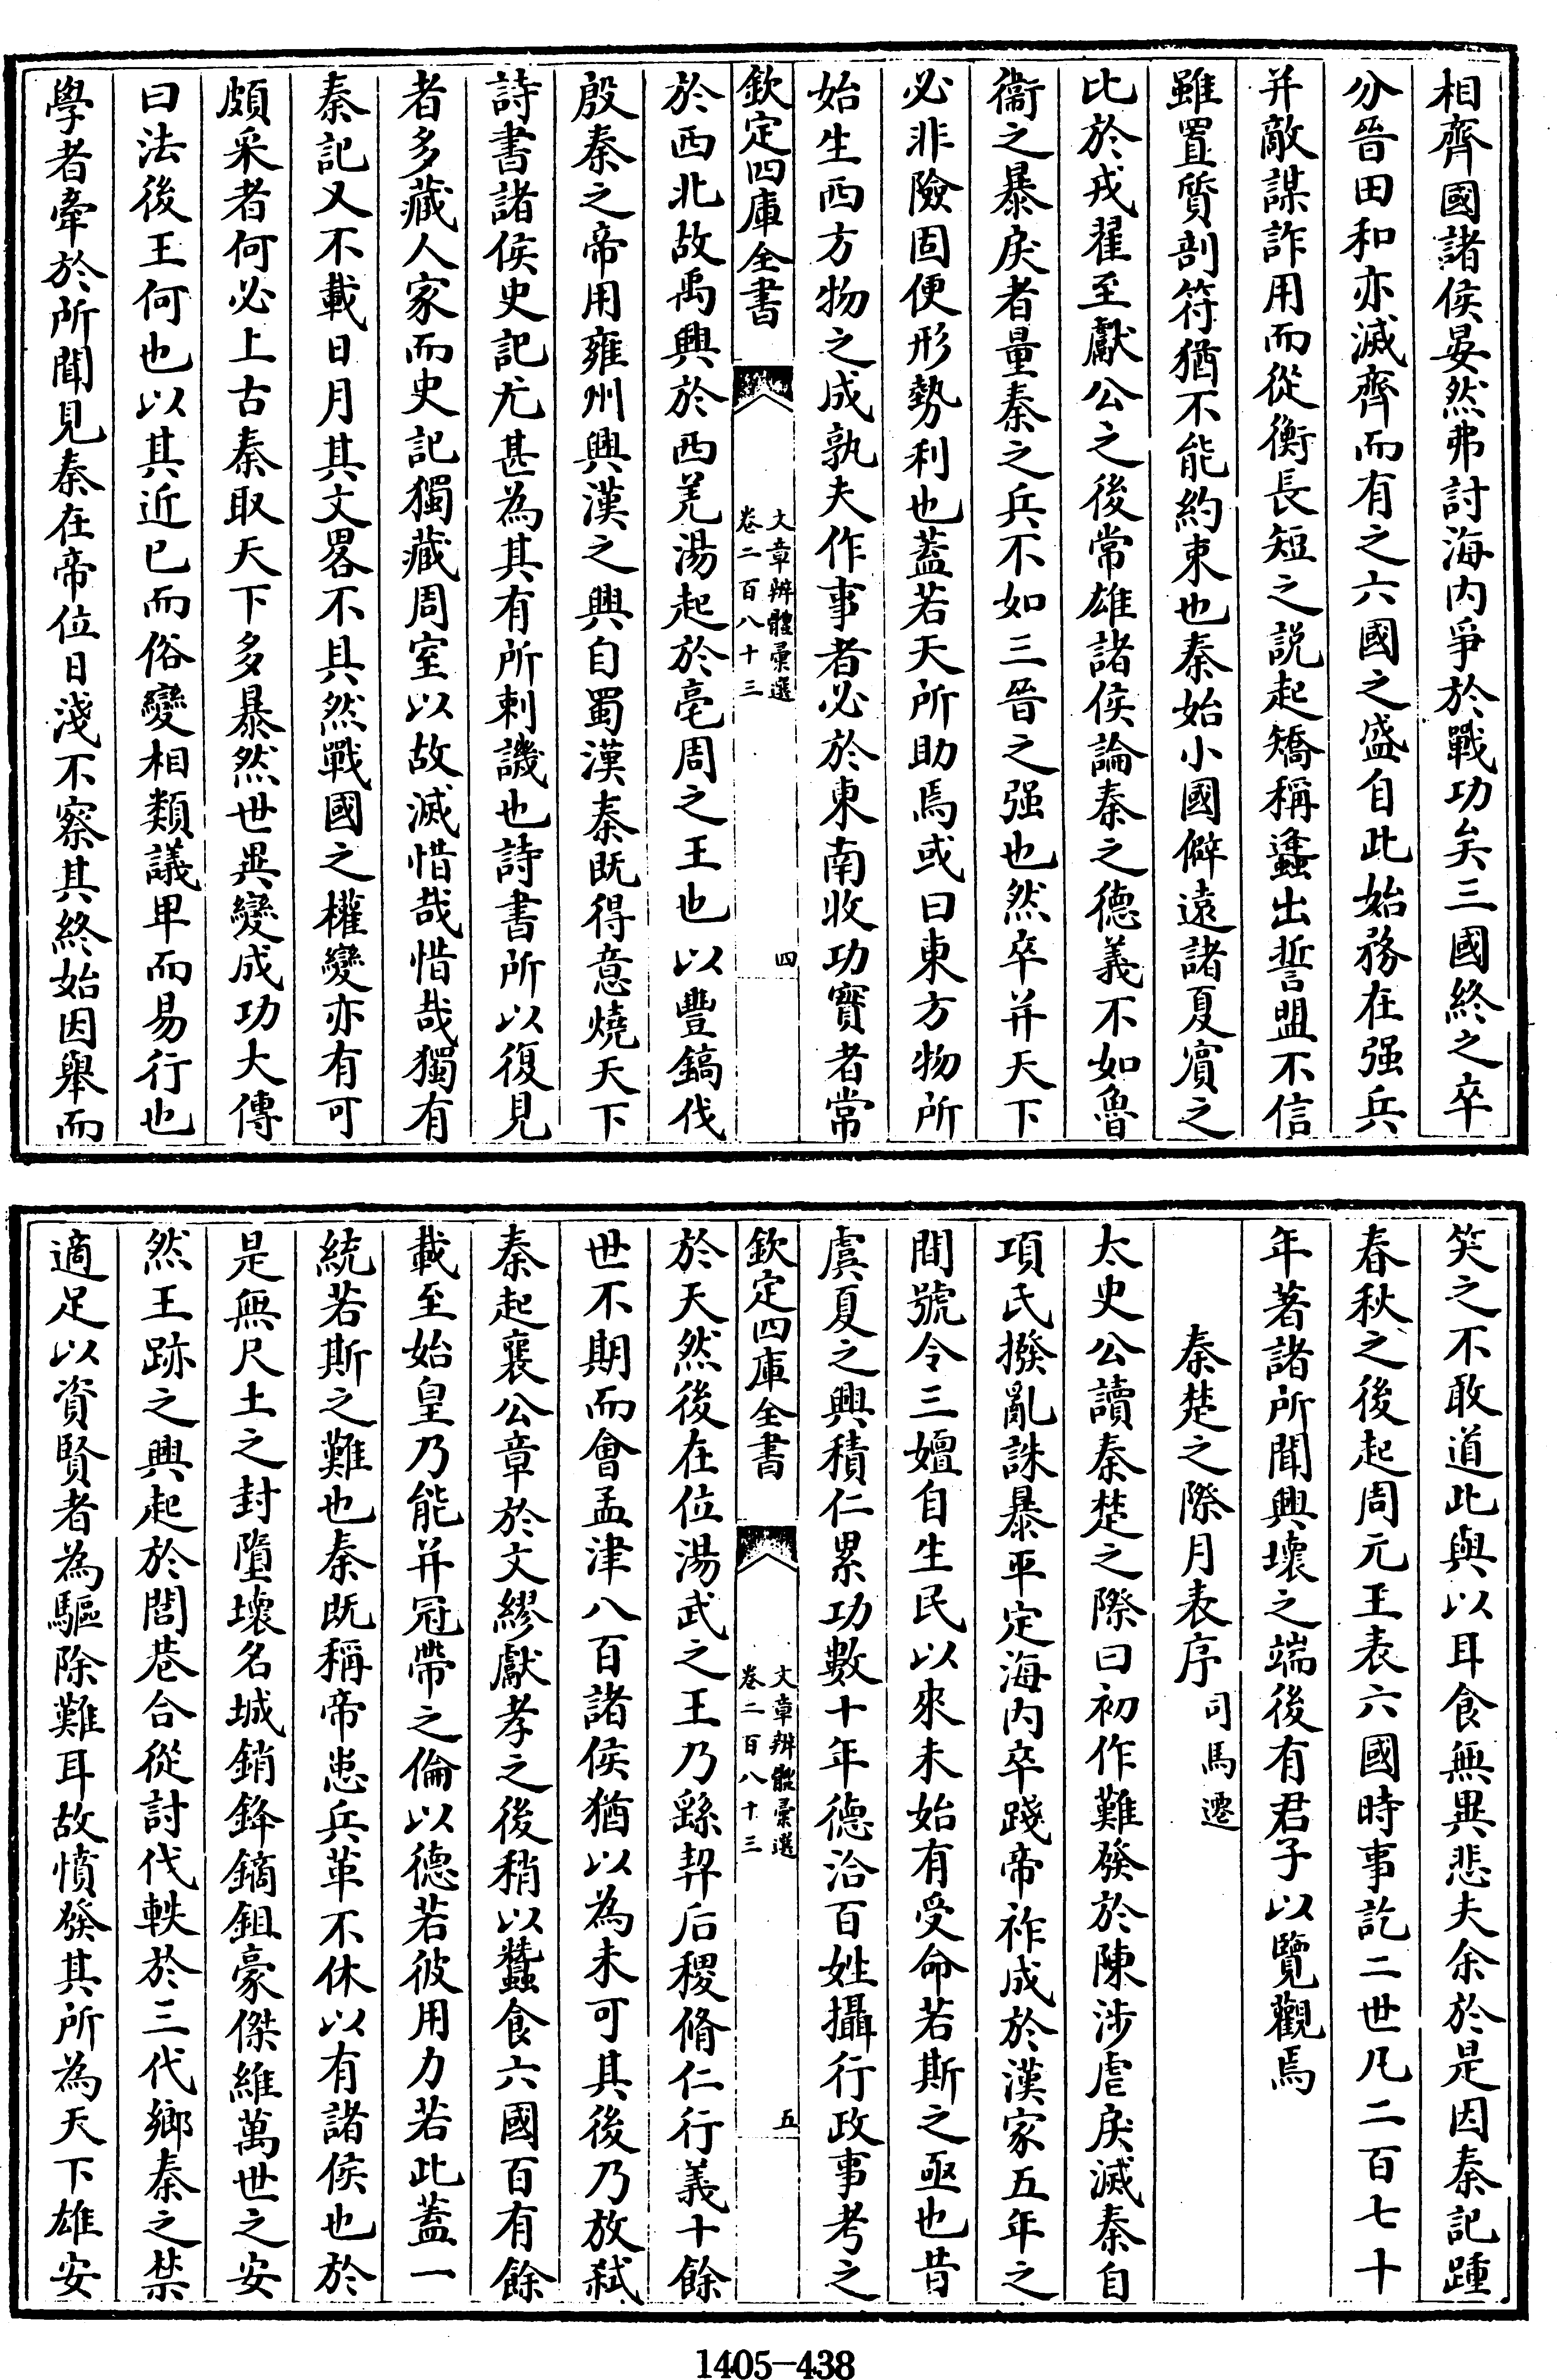 相齊國諸侯晏然弗討海内爭於戰功矣三國終之卒
分晉田和亦滅齊而有之六國之盛自此始務在强兵
并敵謀詐用而從衡長短之説起矯稱蠭出誓盟不信
雖置質剖符猶不能約束也秦始小國僻遠諸夏賓之
比於戎翟至獻公之後常雄諸侯論秦之德義不如魯
衞之暴戾者量秦之兵不如三晉之强也然卒并天下
必非險固便形勢利也蓋若天所助焉或曰東方物所
始生西方物之成孰夫作事者必於東南收功實者常
欽定四庫全書
文章辨體彙選
卷二百八十三
四
於西北故禹興於西羌湯起於亳周之王也以豐鎬伐
殷秦之帝用雍州興漢之興自蜀漢秦既得意燒天下
詩書諸侯史記尤甚為其有所刺譏也詩書所以復見
者多藏人家而史記獨藏周室以故滅惜哉惜哉獨有
秦記又不載日月其文畧不具然戰國之權變亦有可
頗采者何必上古秦取天下多暴然世異變成功大傳
曰法後王何也以其近已而俗變相類議卑而易行也
學者牽於所聞見秦在帝位日淺不察其終始因舉而
笑之不敢道此與以耳食無異悲夫余於是因秦記踵
春秋之後起周元王表六國時事訖二世凡二百七十
年著諸所聞興壞之端後有君子以覽觀焉
秦楚之際月表序 司馬遷
太史公讀秦楚之際曰初作難發於陳涉虐戾滅秦自
項氏撥亂誅暴平定海内卒踐帝祚成於漢家五年之
間號令三嬗自生民以來未始有受命若斯之亟也昔
虞夏之興積仁累功數十年德洽百姓攝行政事考之
欽定四庫全書
文章辨體彙選
卷二百八十三
五
於天然後在位湯武之王乃繇契后稷脩仁行義十餘
世不期而會孟津八百諸侯猶以為未可其後乃放弑
秦起襄公章於文繆獻孝之後稍以蠶食六國百有餘
載至始皇乃能并冠帶之倫以德若彼用力若此蓋一
統若斯之難也秦既稱帝患兵革不休以有諸侯也於
是無尺土之封墮壞名城銷鋒鏑鉏豪傑維萬世之安
然王跡之興起於閭巷合從討伐軼於三代鄉秦之禁
適足以資賢者為驅除難耳故憤發其所為天下雄安
1405-438